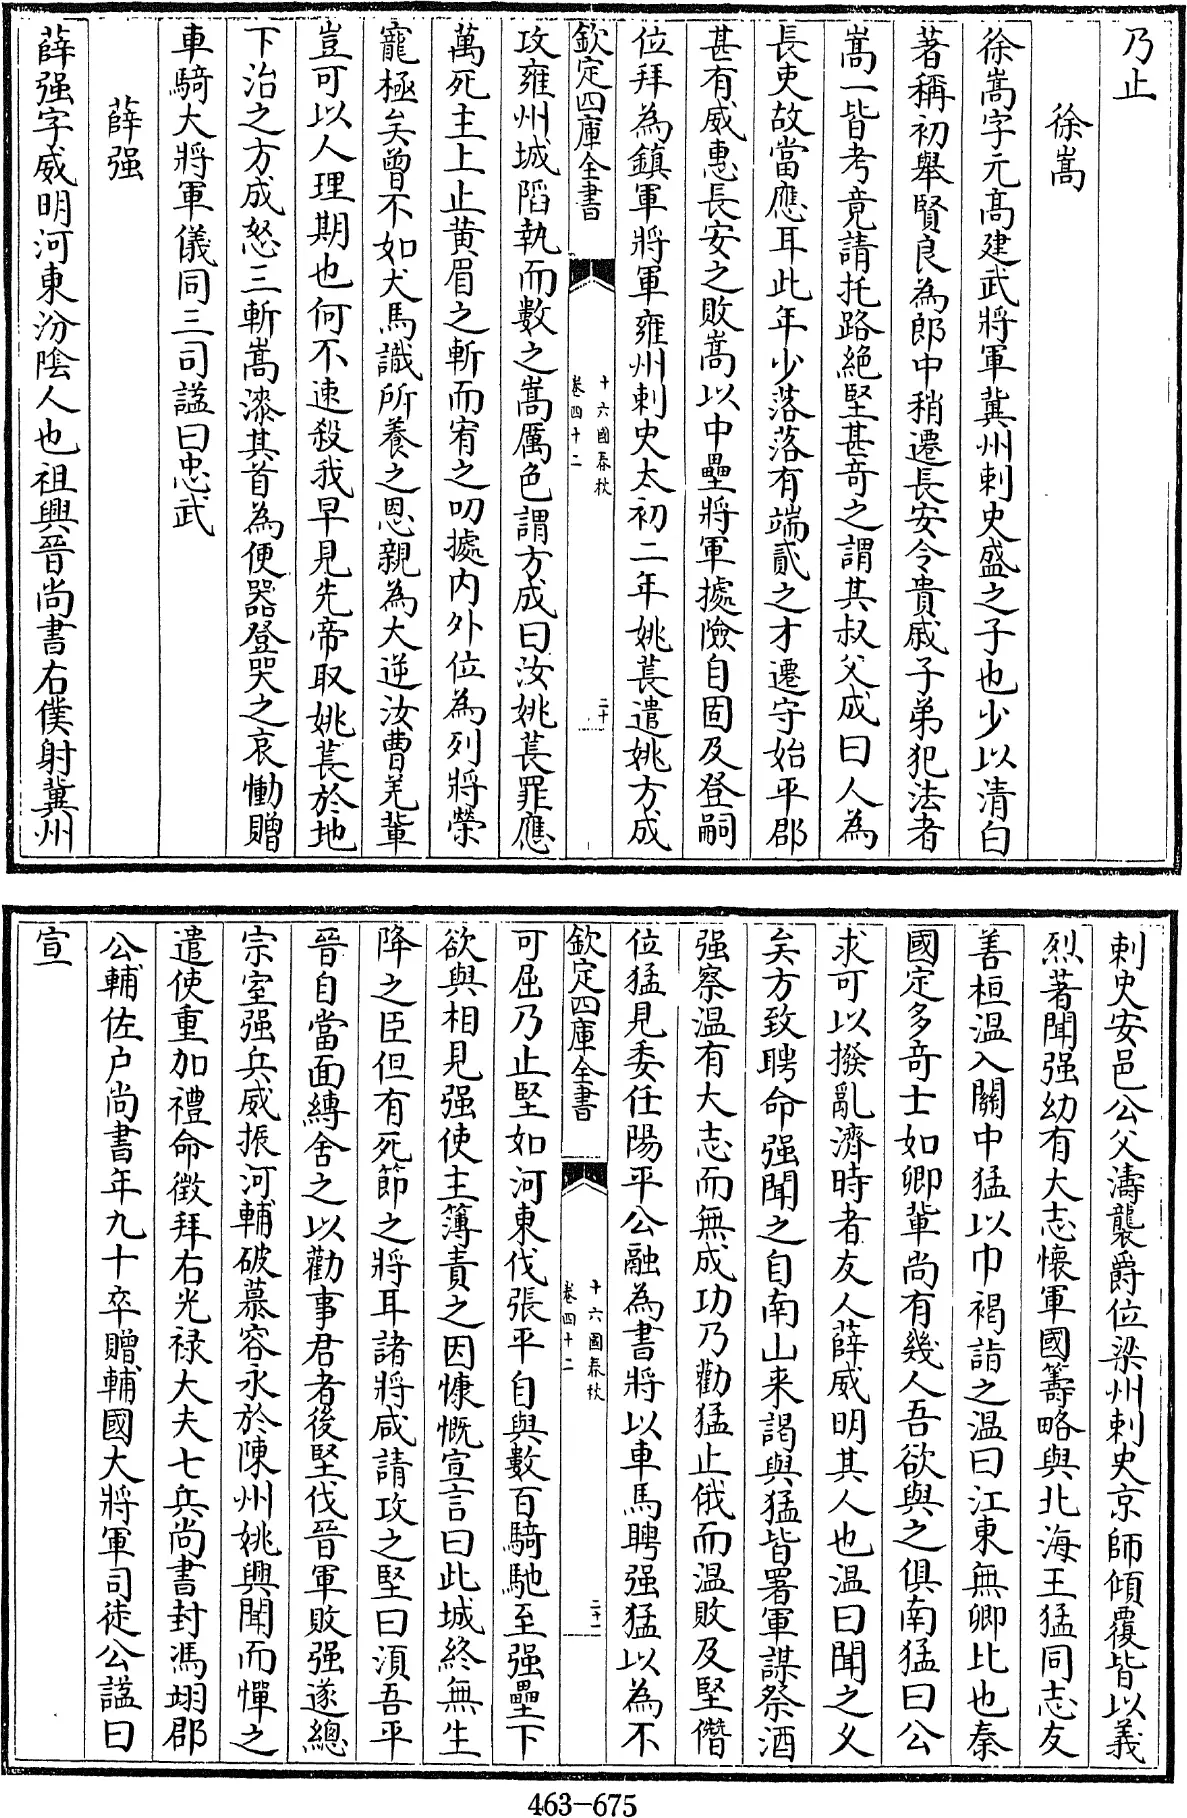 乃止
徐嵩
徐嵩字元髙建武將軍冀州刺史盛之子也少以清白
著稱初舉賢良為郎中稍遷長安令貴戚子弟犯法者
嵩一皆考竟請托路絶堅甚竒之謂其叔父成曰人為
長吏故當應耳此年少落落有端貳之才遷守始平郡
甚有威惠長安之敗嵩以中壘將軍據險自固及登嗣
位拜為鎮軍將軍雍州刺史太初二年姚萇遣姚方成
欽定四庫全書
十六國春秋
卷四十二
二十
攻雍州城䧟執而數之嵩厲色謂方成曰汝姚萇罪應
萬死主上止黄眉之斬而宥之叨據内外位為列將榮
寵極矣曽不如犬馬識所養之恩親為大逆汝曹羌輩
豈可以人理期也何不速殺我早見先帝取姚萇於地
下治之方成怒三斬嵩漆其首為便器登哭之哀慟贈
車騎大將軍儀同三司諡曰忠武
薛强
薛强字威明河東汾陰人也祖興晉尚書右僕射冀州
刺史安邑公父濤襲爵位梁州刺史京師傾覆皆以義
烈著聞强幼有大志懐軍國籌略與北海王猛同志友
善桓温入關中猛以巾褐詣之温曰江東無卿比也秦
國定多竒士如卿輩尚有幾人吾欲與之俱南猛曰公
求可以撥亂濟時者友人薛威明其人也温曰聞之乆
矣方致聘命强聞之自南山来謁與猛皆署軍謀祭酒
强察温有大志而無成功乃勸猛止俄而温敗及堅僭
位猛見委任陽平公融為書將以車馬聘强猛以為不
欽定四庫全書
十六國春秋
卷四十二
二十一
可屈乃止堅如河東伐張平自與數百騎馳至强壘下
欲與相見强使主簿責之因慷慨宣言曰此城終無生
降之臣但有死節之將耳諸將咸請攻之堅曰須吾平
晉自當面縳舍之以勸事君者後堅伐晉軍敗强遂總
宗室强兵威振河輔破慕容永於陳州姚興聞而憚之
遣使重加禮命徴拜右光禄大夫七兵尚書封馮翊郡
公輔佐户尚書年九十卒贈輔國大將軍司徒公諡曰
宣
463-675